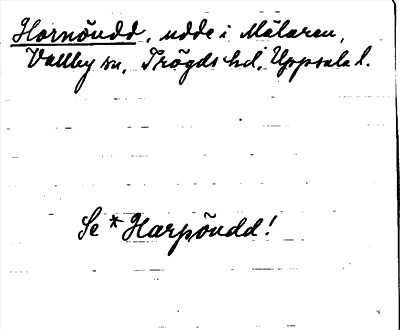 Hornöudd, udde i Mälaren,
Vallby sn, Trögds hd, Uppsala l.
Se *Harpöudd!